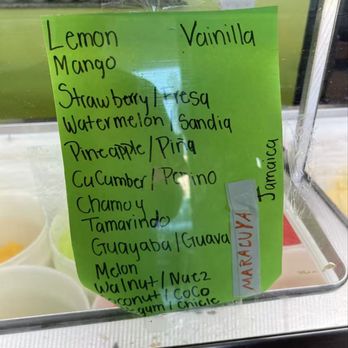 Lemon
Vainilla
Mango
Strawberry/Fresa
Watermelon/Sandia
Pineapple/Piña
CuCumber/Pepino
Chamoy
Tamarindo
Guayaba/Guava
Melon
Walnut/Nuez
Coconut/CoCo
gum/Chicle
Jamaica
MARACUYA